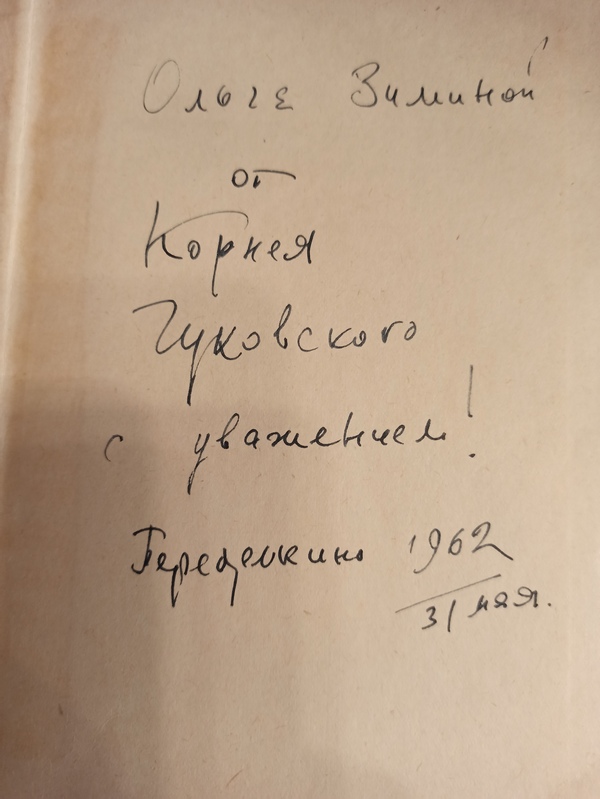 Ольге Зиминой
от
Корнея
Чуковского
с уважением!
Переделкино 1962
31 мая.